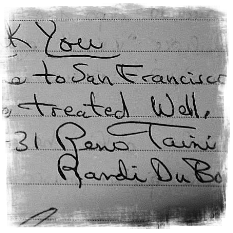 K You
e to San Francisco
e treated Well,
-31 Reno Taini
Randi DuBo